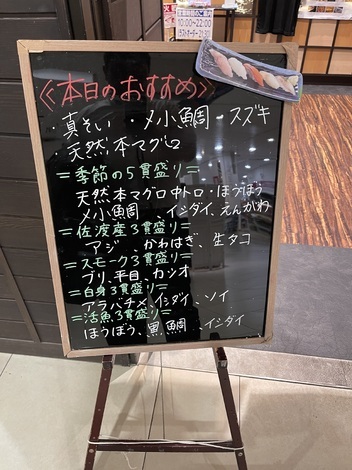 営業時間
10:00〜22:00
ラストオーダー21:30
《本日のおすすめ》
・真そい ・〆小鯛 ・スズキ
・天然本マグロ
=季節の5貫盛り=
天然本マグロ中トロ・ほうぼう
〆小鯛 、イシダイ、えんがわ
=佐渡産3貫盛り=
アジ、かわはぎ、生タコ
=スモーク3貫盛り=
ブリ、平目、カツオ
=白身3貫盛り=
アラバチメ、イシダイ、ソイ
=活魚3貫盛り=
ほうぼう、黒鯛 、イシダイ